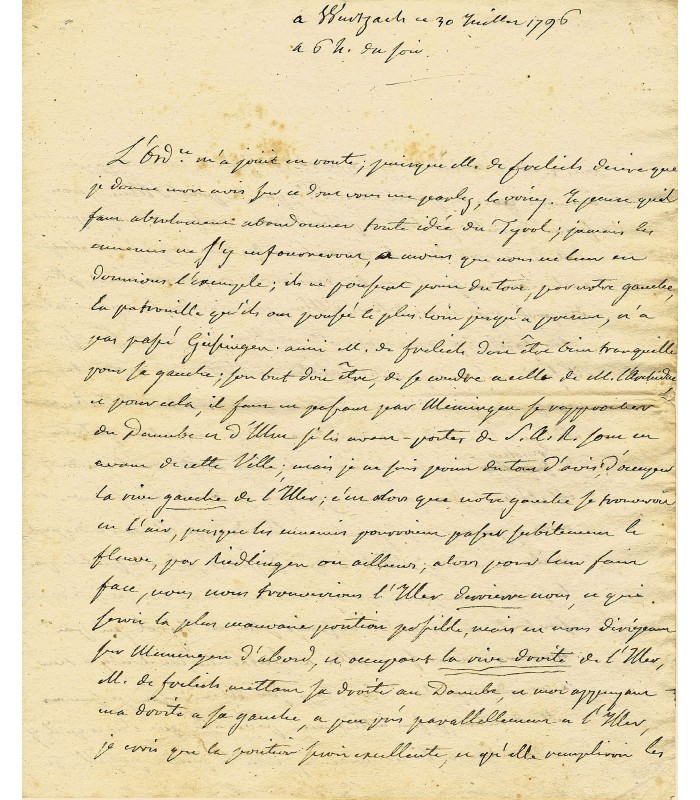 a Wurtzach ce 30 Juillet 1796
a 6 h. du soir.
L'Ord.ce m'a joint en route; puisque M. de frelich desire que
je donne mon avis sur ce dont vous me parlez, le voicy. Je pense qu'il
faut absolument abandonner toute idée du Tyrol; jamais les
ennemis ne s'y enfourneront, a moins que nous ne leur en
donnions l'exemple; ils ne poussent point du tout, par notre gauche,
La patrouille qu'ils ont poussé le plus loin jusqu'a present, n'a
pas passé Geisingen. ainsi M. de frelich doit être bien tranquille
pour sa gauche; son but doit être, de se coudre a celle de M. l'Archiduc
et pour cela, il faut en passant par Memingen se rapprocher
du Danube et d'Ulm si les avant-postes de S. A. R. sont en
avant de cette Ville; mais je ne suis point du tout d'avis d'occuper
la rive gauche de l'Iller; c'est alors que notre gauche se trouveroit
en l'air, puisque les ennemis pourroient passer subitement le
fleuve, par Riedlingen ou ailleurs; alors pour leur faire
face, nous nous trouverions l'Iller derrierre nous, ce qui
seroit la plus mauvaise position possible, mais en nous dirigeant
sur Memingen d'abord, et occupant la rive droite de l'Iller,
M. de frelich mettant sa droite au Danube, et moi appuyant
ma droite a sa gauche, a peu près parallèllement a l'Iller,
je crois que la position seroit excellente, et qu'elle rempliroit les